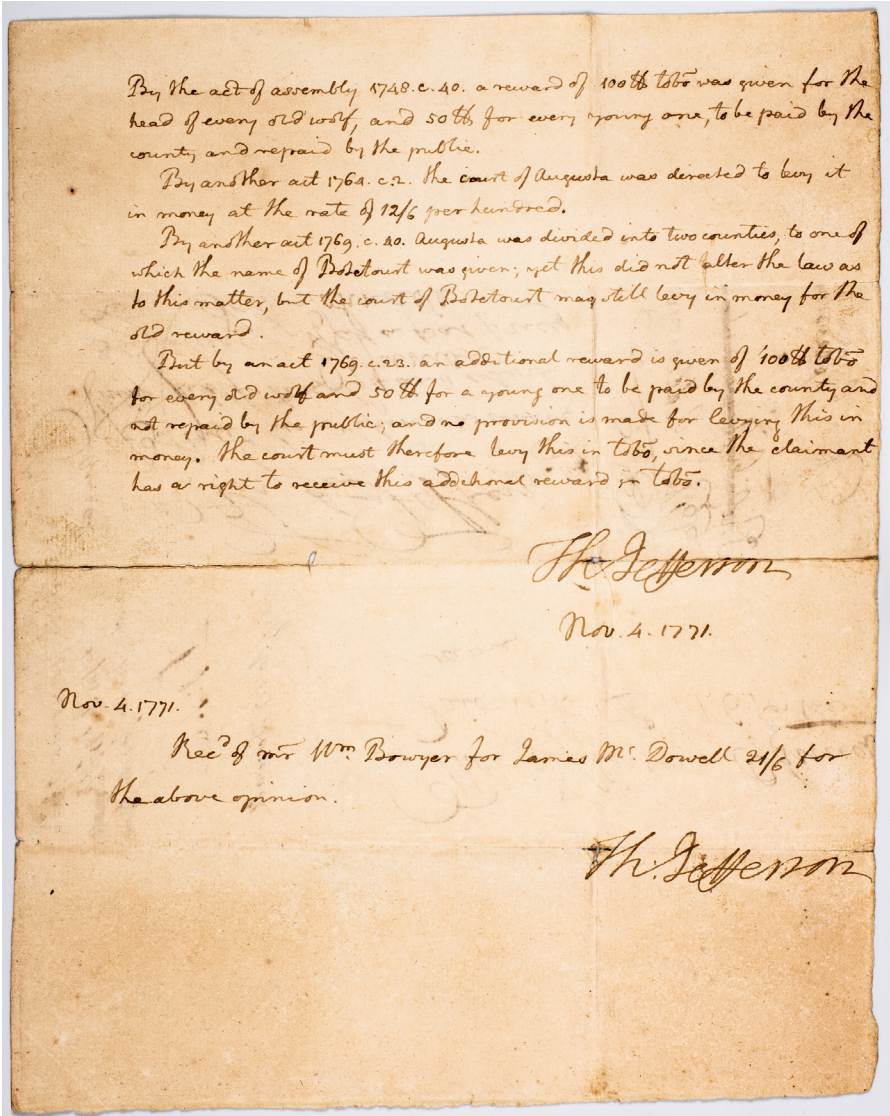 By the act of assembly 1748. c. 40. a reward of 100 ℔ tobo̅ was given for the
head of every old wolf, and 50 ℔ for every young one, to be paid by the
county and repaid by the public.
By another act 1764. c. 2. the court of Augusta was directed to levy it
in money at the rate of 12/6 per hundred.
By another act 1769. c. 40. Augusta was divided into two counties, to one of
which the name of Botetourt was given; yet this did not alter the law as
to this matter, but the court of Botetourt may still levy in money for the
old reward.
But by an act 1769. c. 23. an additional reward is given of 100 ℔ tobo̅
for every old wolf and 50 ℔ for a young one to be paid by the county and
not repaid by the public; and no provision is made for levying this in
money. the court must therefore levy this in tobo̅, since the claimant
has a right to receive this additional reward in tobo̅.
Th Jefferson
Nov. 4. 1771.
Nov. 4. 1771.
Rec'd of mr Wm Bowyer for James Mc. Dowell 21/6 for
the above opinion.
Th. Jefferson